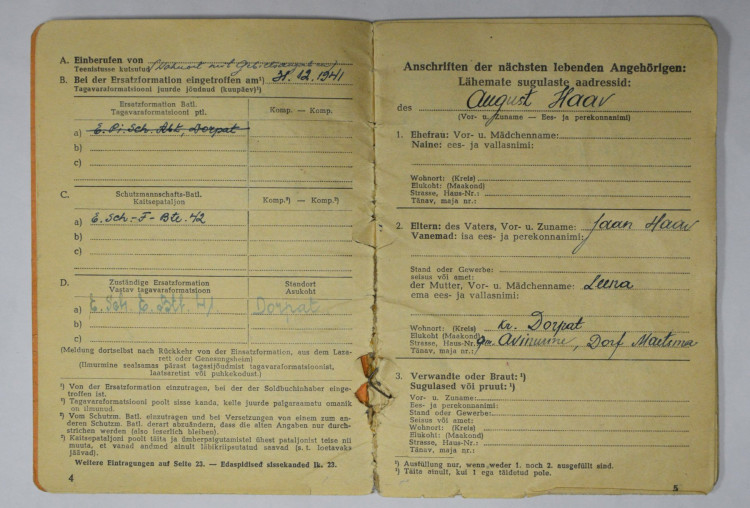 A. Einberufen von
Teenistusse kutsutud
B. Bei der Ersatzformation eingetroffen am¹) 31.12.1941
Tagavaraformatsiooni juurde jõudnud (kuupäev)¹)
Ersatzformation Batl.
Tagavaraformatsiooni ptl.
Komp. — Komp.
a) E. Pi. Sch. Abt, Dorpat
b)
c)
C. Schutzmannschafts-Batl.
Kaitsepataljon
Komp.³) — Komp.³)
a) E. Sch.-F-Btl. 42
b)
c)
D. Zuständige Ersatzformation
Vastav tagavaraformatsioon
Standort
Asukoht
a) E. Sch. E. Btl. Dorpat
b)
c)
(Meldung dortselbst nach Rückkehr von der Einsatzformation, aus dem Lazarett oder Genesungsheim)
(Ilmurnine sealsamas pärast tagasijõudmist tagavaraformatsioonist,
laatsaretist või puhkekodust.)
¹) Von der Ersatzformation einzutragen, bei der der Soldbuchinhaber eingetroffen ist.
²) Tagavaraformatsiooni poolt sisse kanda, kelle juurde palgaraamatu omanik
on ilmunud.
³) Vom Schutzm. Batl. einzutragen und bei Versetzungen von einem zum anderen
Schutzm. Batl. derart abzuändern, dass die alten Angaben nur durchstrichen
werden (also leserlich bleiben).
muuta, et vanad andmed ainult läbikriipsutatud saavad (s. t. loetavaks
jäävad).
Weitere Eintragungen auf Seite 23. — Edaspidised sissekanded lk. 23.
4
Anschriften der nächsten lebenden Angehörigen:
Lähemate sugulaste aadressid:
des August Haav
(Vor- u. Zuname — Ees- ja perekonnanimi)
1. Ehefrau: Vor- u. Mädchenname:
Naine: ees- ja vallasnimi:
Wohnort: (Kreis)
Elukoht: (Maakond)
Strasse, Haus-Nr.:
Tänav, maja nr.:
2. Eltern: des Vaters, Vor- u. Zuname: Jaan Haav
Vanemad: isa ees- ja perekonnanimi:
Stand oder Gewerbe:
seisus või amet:
der Mutter, Vor- u. Mädchenname: Leena
ema ees- ja vallasnimi:
Wohnort: (Kreis) Kr. Dorpat
Elukoht (Maakond)
Strasse, Haus-Nr. Gm. Avinurme, Dorf Maetsma
Tänav, maja nr.:
3. Verwandte oder Braut: ¹)
Sugulased või pruut: ¹)
Vor- u. Zuname:
Ees- ja perekonnanimi:
Stand oder Gewerbe:
seisus või amet:
Wohnort: (Kreis)
Elukoht: (Maakond)
Strasse, Haus-Nr.:
Tänav, maja nr.:
¹) Ausfüllung nur, wenn weder 1. noch 2. ausgefüllt sind.
¹) Täita ainult, kui 1 ega 2 täidetud pole.
5